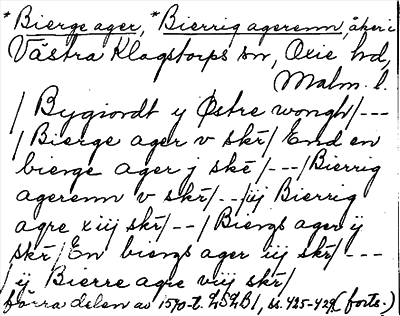 *Bierge ager, *Bierrig agerenn, åker i
Västra Klagstorps sn, Oxie hd,
Malm. l.
/ Bygiordt y Østre wongh/ ---
/ Bierge ager v skr/ End en
bierge ager j ske/ - - -/Bierrig
agerenn v skr/ - -/iij Bierrig
agre xiij skr/ - - / Biergs ager ij
skr/ En biergs ager iij skr/ - - -
ij Bierre agre viij skr/
förra delen av 1570-t. LSLB1, ss. 425-429 (forts.)